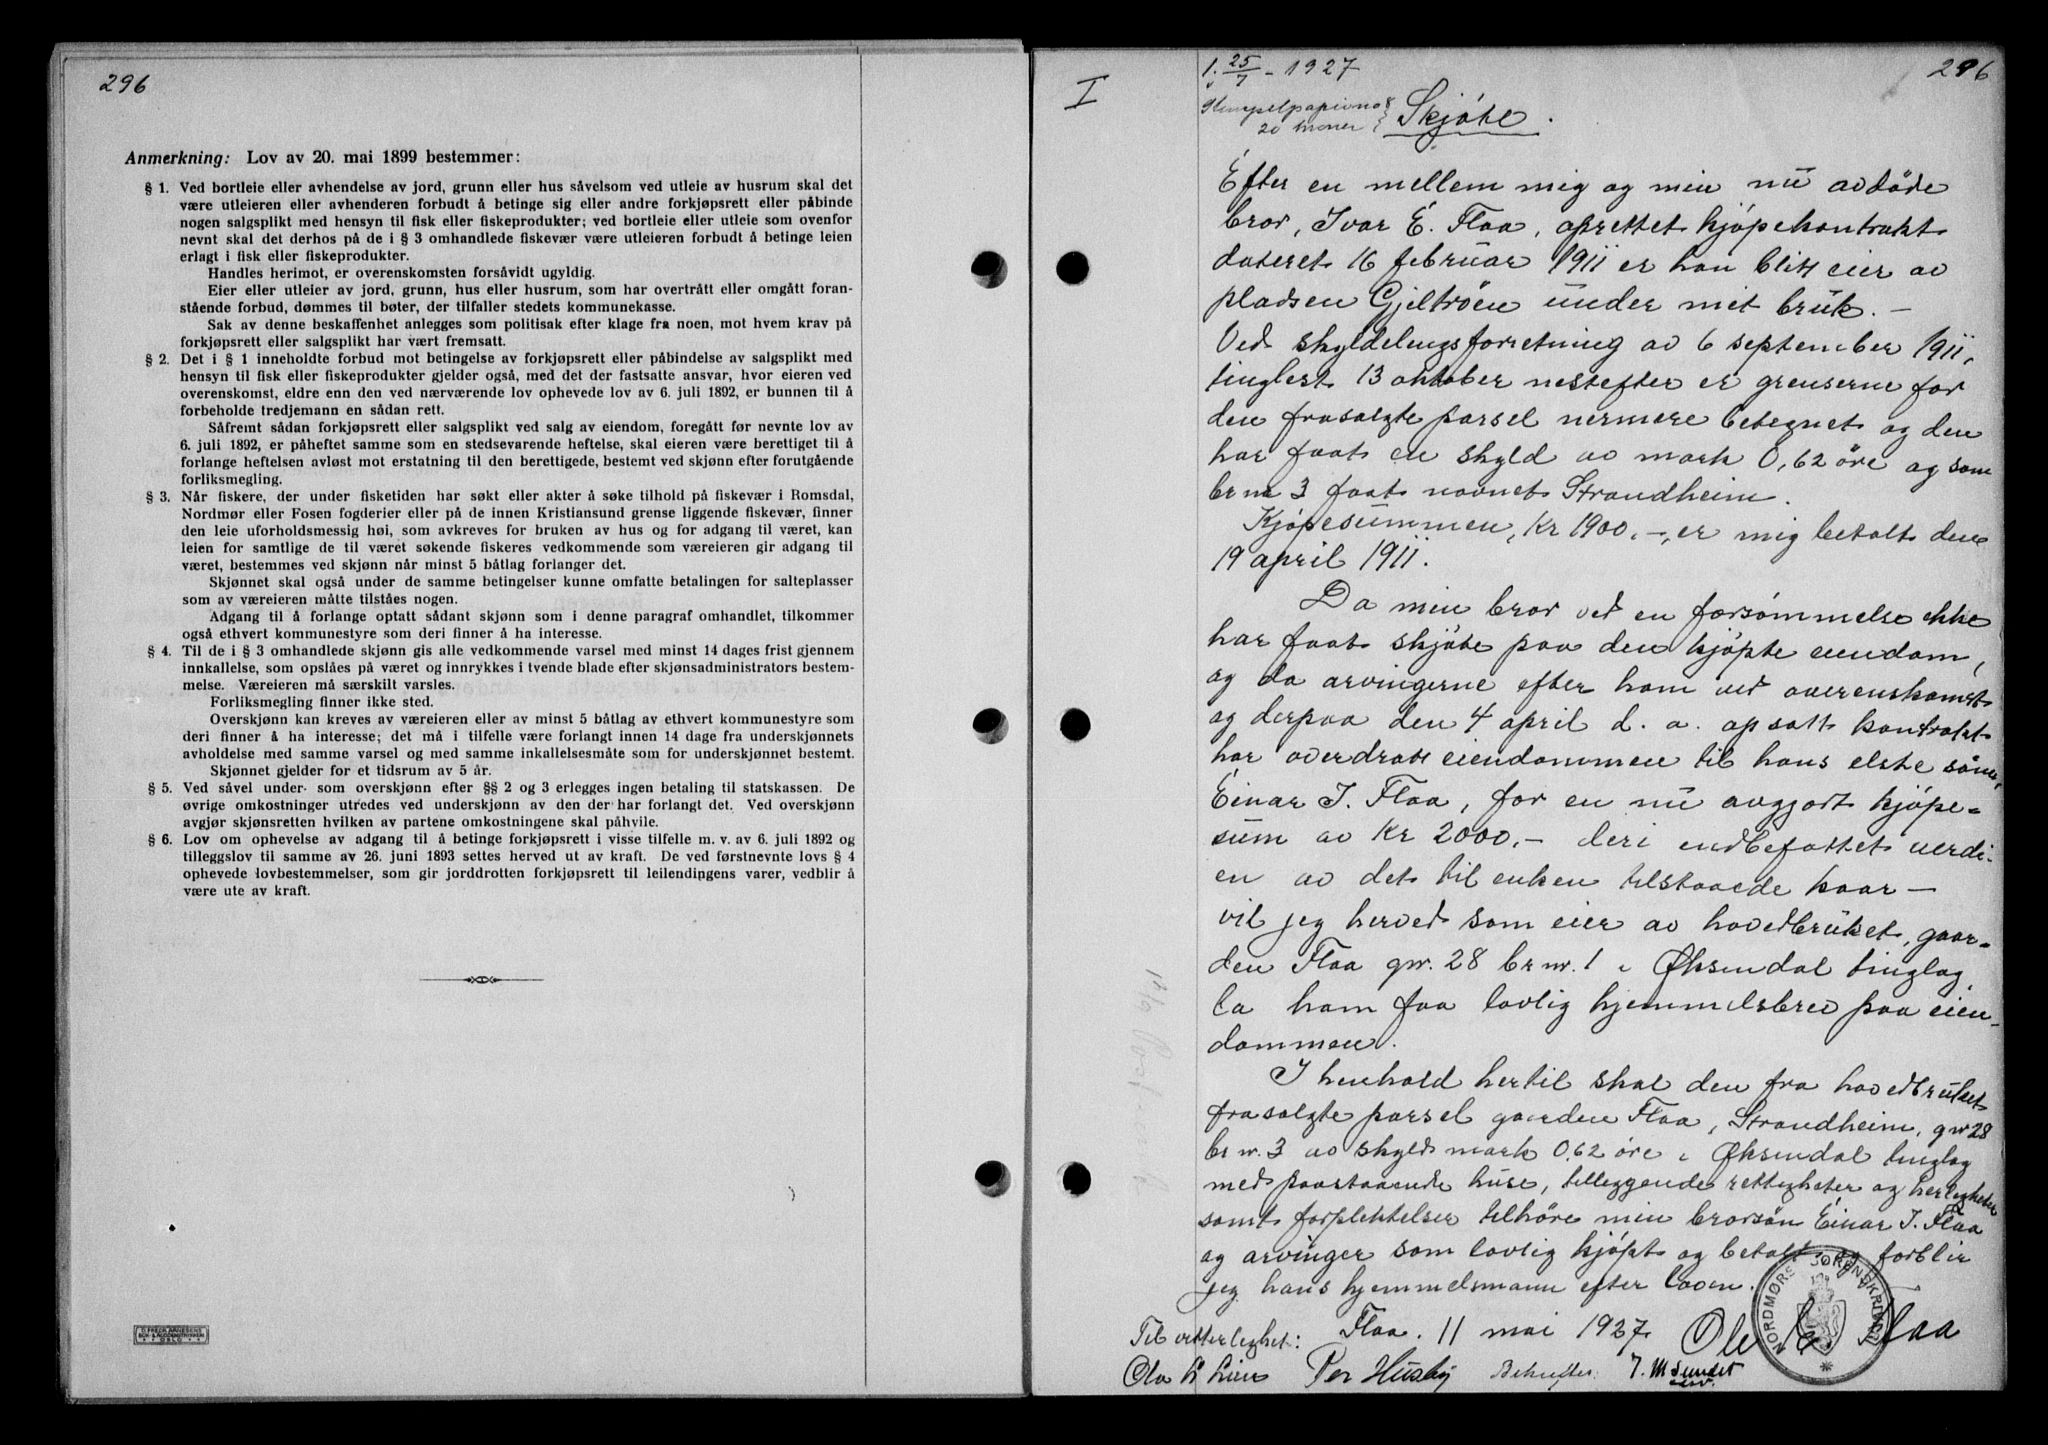 296
Anmerkning: Lov av 20. mai 1899 bestemmer:
§ 1. Ved bortleie eller avhendelse av jord, grunn eller hus såvelsom ved utleie av husrum skal det
være utleieren eller avhenderen forbudt å betinge sig eller andre forkjøpsrett eller påbinde
nogen salgsplikt med hensyn til fisk eller fiskeprodukter; ved bortleie eller utleie som ovenfor
nevnt skal det derhos på de i § 3 omhandlede fiskevær være utleieren forbudt å betinge leien
erlagt i fisk eller fiskeprodukter.
Handles herimot, er overenskomsten forsåvidt ugyldig.
Eier eller utleier av jord, grunn, hus eller husrum, som har overtrått eller omgått foran-
stående forbud, dømmes til bøter, der tilfaller stedets kommunekasse.
Sak av denne beskaffenhet anlegges som politisak efter klage fra noen, mot hvem krav på
forkjøpsrett eller salgsplikt har vært fremsatt.
§ 2. Det i § 1 inneholdte forbud mot betingelse av forkjøpsrett eller påbindelse av salgsplikt med
hensyn til fisk eller fiskeprodukter gjelder også, med det der fastsatte ansvar, hvor eieren ved
overenskomst, eldre enn den ved nærværende lov ophevede lov av 6. juli 1892, er bunnen til å
forbeholde tredjemann en sådan rett.
Såfremt sådan forkjøpsrett eller salgsplikt ved salg av eiendom, foregått før nevnte lov av
6. juli 1892, er påheftet samme som en stedsevarende heftelse, skal eieren være berettiget til å
forlange heftelsen avløst mot erstatning til den berettigede, bestemt ved skjønn efter forutgående
forliksmegling.
§ 3. Når fiskere, der under fisketiden har søkt eller akter å søke tilhold på fiskevær i Romsdal,
Nordmør eller Fosen fogderier eller på de innen Kristiansund grense liggende fiskevær, finner
den leie uforholdsmessig høi, som avkreves for bruken av hus og for adgang til været, kan
leien for samtlige de til været søkende fiskeres vedkommende som væreieren gir adgang til
været, bestemmes ved skjønn når minst 5 båtlag forlanger det.
Skjønnet skal også under de samme betingelser kunne omfatte betalingen for salteplasser
som av væreieren måtte tilståes nogen.
Adgang til å forlange optatt sådant skjønn som i denne paragraf omhandlet, tilkommer
også ethvert kommunestyre som deri finner å ha interesse.
§ 4. Til de i § 3 omhandlede skjønn gis alle vedkommende varsel med minst 14 dages frist gjennem
innkallelse, som opslåes på været og innrykkes i tvende blade efter skjønsadministrators bestem-
melse. Væreieren må særskilt varsles.
Forliksmegling finner ikke sted.
Overskjønn kan kreves av væreieren eller av minst 5 båtlag av ethvert kommunestyre som
deri finner å ha interesse; det må i tilfelle være forlangt innen 14 dage fra underskjønnets
avholdelse med samme varsel og med samme inkallelsesmåte som for underskjønnet bestemt.
Skjønnet gjelder for et tidsrum av 5 år.
§ 5. Ved såvel under- som overskjønn efter §§ 2 og 3 erlegges ingen betaling til statskassen. De
øvrige omkostninger utredes ved underskjønn av den der har forlangt det. Ved overskjønn
avgjør skjønsretten hvilken av partene omkostningene skal påhvile.
§ 6. Lov om ophevelse av adgang til å betinge forkjøpsrett i visse tilfelle m. v. av 6. juli 1892 og
tilleggslov til samme av 26. juni 1893 settes herved ut av kraft. De ved førstnevnte lovs § 4
ophevede lovbestemmelser, som gir jorddrotten forkjøpsrett til leilendingens varer, vedblir å
være ute av kraft.
I
25/7 - 1927
296
20 kroner
Skjöte.
Efter en mellem mig og min nu avdöde
bror, Ivar E. Flaa, oprettet kjöpekontrakt
dateret 16 februar 1911 er han blit eier av
pladsen Gjeltröen under mit bruk. -
Ved skyldelingsforretning av 6 september 1911,
tinglest 13 oktober nestefter er grenserne for
den frasolgte parsel nermere betegnet og den
har faat en skyld av mark 0,62 öre og som
br nr 3 faat navnet Strandheim.
Kjöpesummen, Kr 1900.-, er mig betalt den
19 april 1911.
Da min bror ved en forsömmelse ikke
har faat skjöte paa den kjöpte eiendom,
og da arvingerne efter ham ved overenskomst
og derpaa den 4 april d. a. opsatt kontrakt
har overdratt eiendommen til hans elste sönn,
Einar I. Flaa, for en nu avgjort kjöpe-
sum av Kr 2000,- deri indbefattet verdi-
en av det til enken tilstaaede kaar -
vil jeg herved som eier av hovedbruket, gaar-
den Flaa gnr. 28 br nr. 1 i Øksendal tinglag
la ham faa lovlig hjemmelsbrev paa eien-
dommen.
I henhold hertil skal den fra hovedbruket
frasolgte parsel gaarden Flaa, Strandheim, gnr 28
br nr. 3 av skyld mark 0,62 öre i Øksendal tinglag
med paastaaende huse, tilleggende rettigheter og herligheter
samt forpliktelser tilhöre min brorsön Einar I. Flaa
og arvinger som lovlig kjöpt og betalt og forblir
jeg hans hjemmelsmann efter loven.
Flaa. 11 mai 1927. Ole E Flaa
Til vitterlighet:
Ola L Lien Per Husby Bekreftes: I. M Sundet
NORDMØRE SORENSKRIVERI